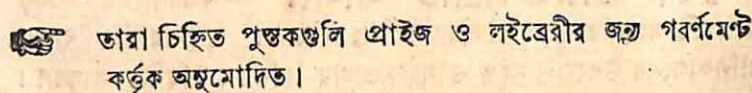 তারা চিহ্নিত পুস্তকগুলি প্রাইজ ও লইব্রেরীর জন্য গবর্ণমেন্ট
কর্ত্তৃক অনুমোদিত।